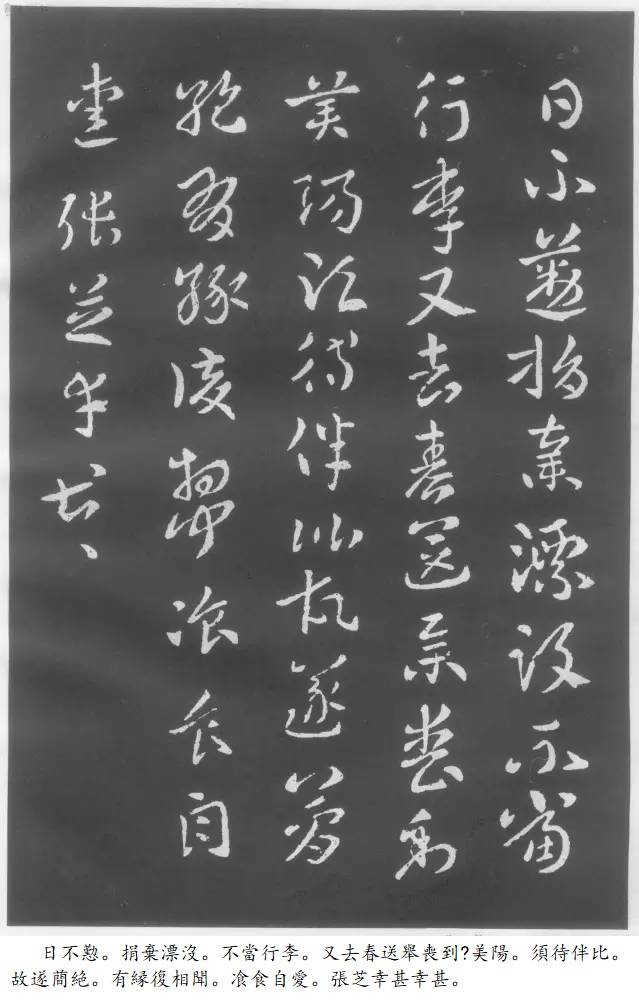 日不懃捐棄漂沒不當
行李又去春送舉喪到
美陽須待伴比故遂蕳
絕有緣復相聞飡食自
愛張芝幸甚、、
日不懃。捐棄漂沒。不當行李。又去春送舉喪到?美陽。須待伴比。
故遂蕳絕。有緣復相聞。飡食自愛。張芝幸甚幸甚。